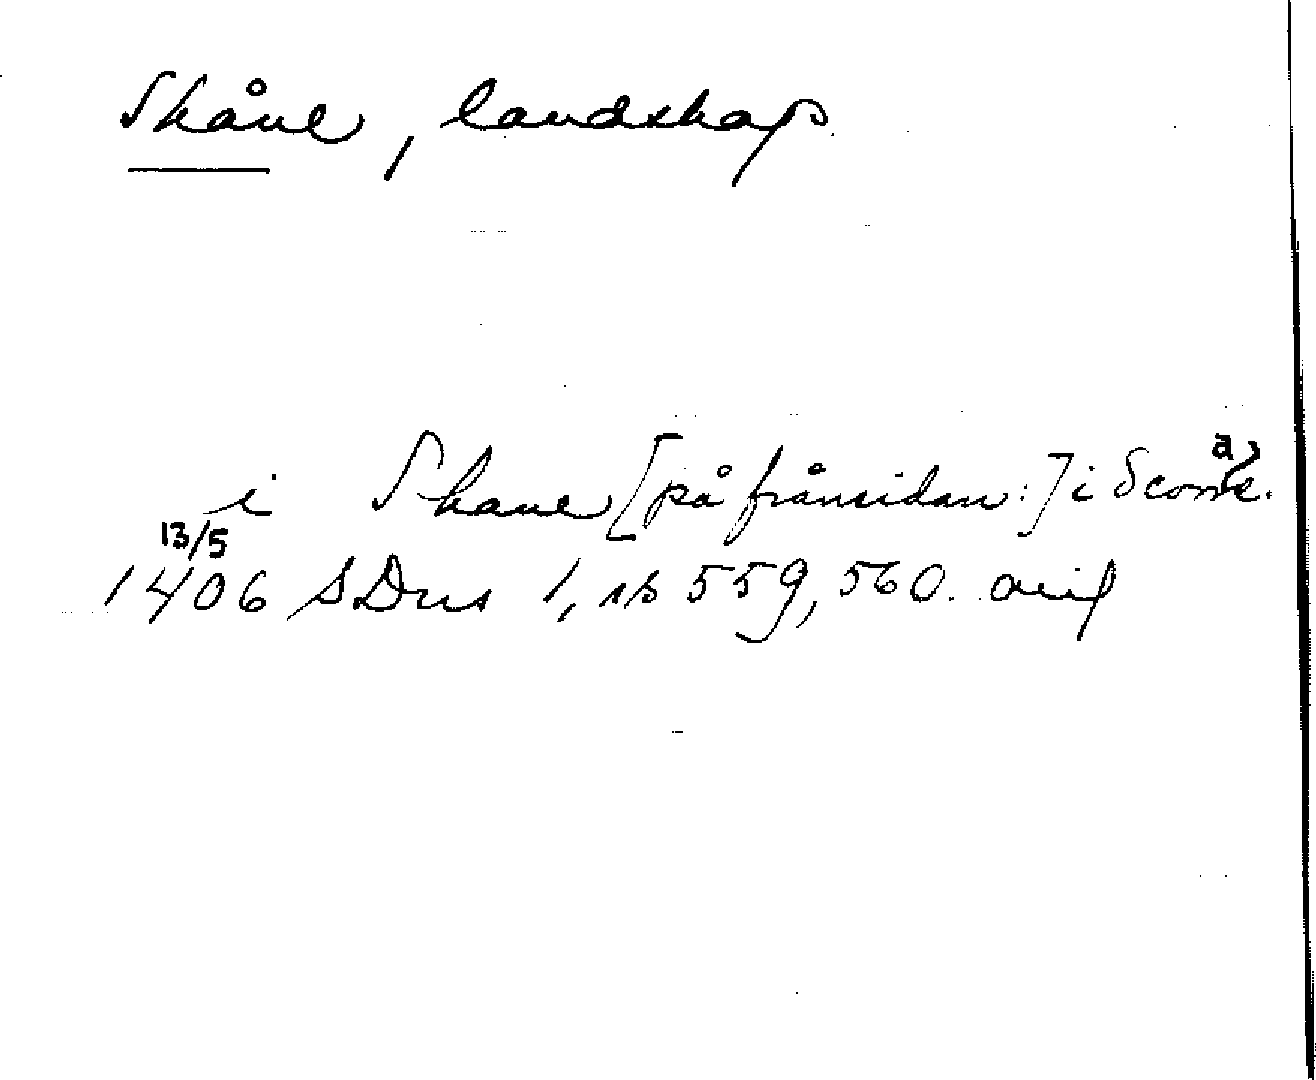 Skåne, landskap
i Skane [på frånsidan:] i Scon
13/5
1406 SDns 1, sp 559, 560. avif